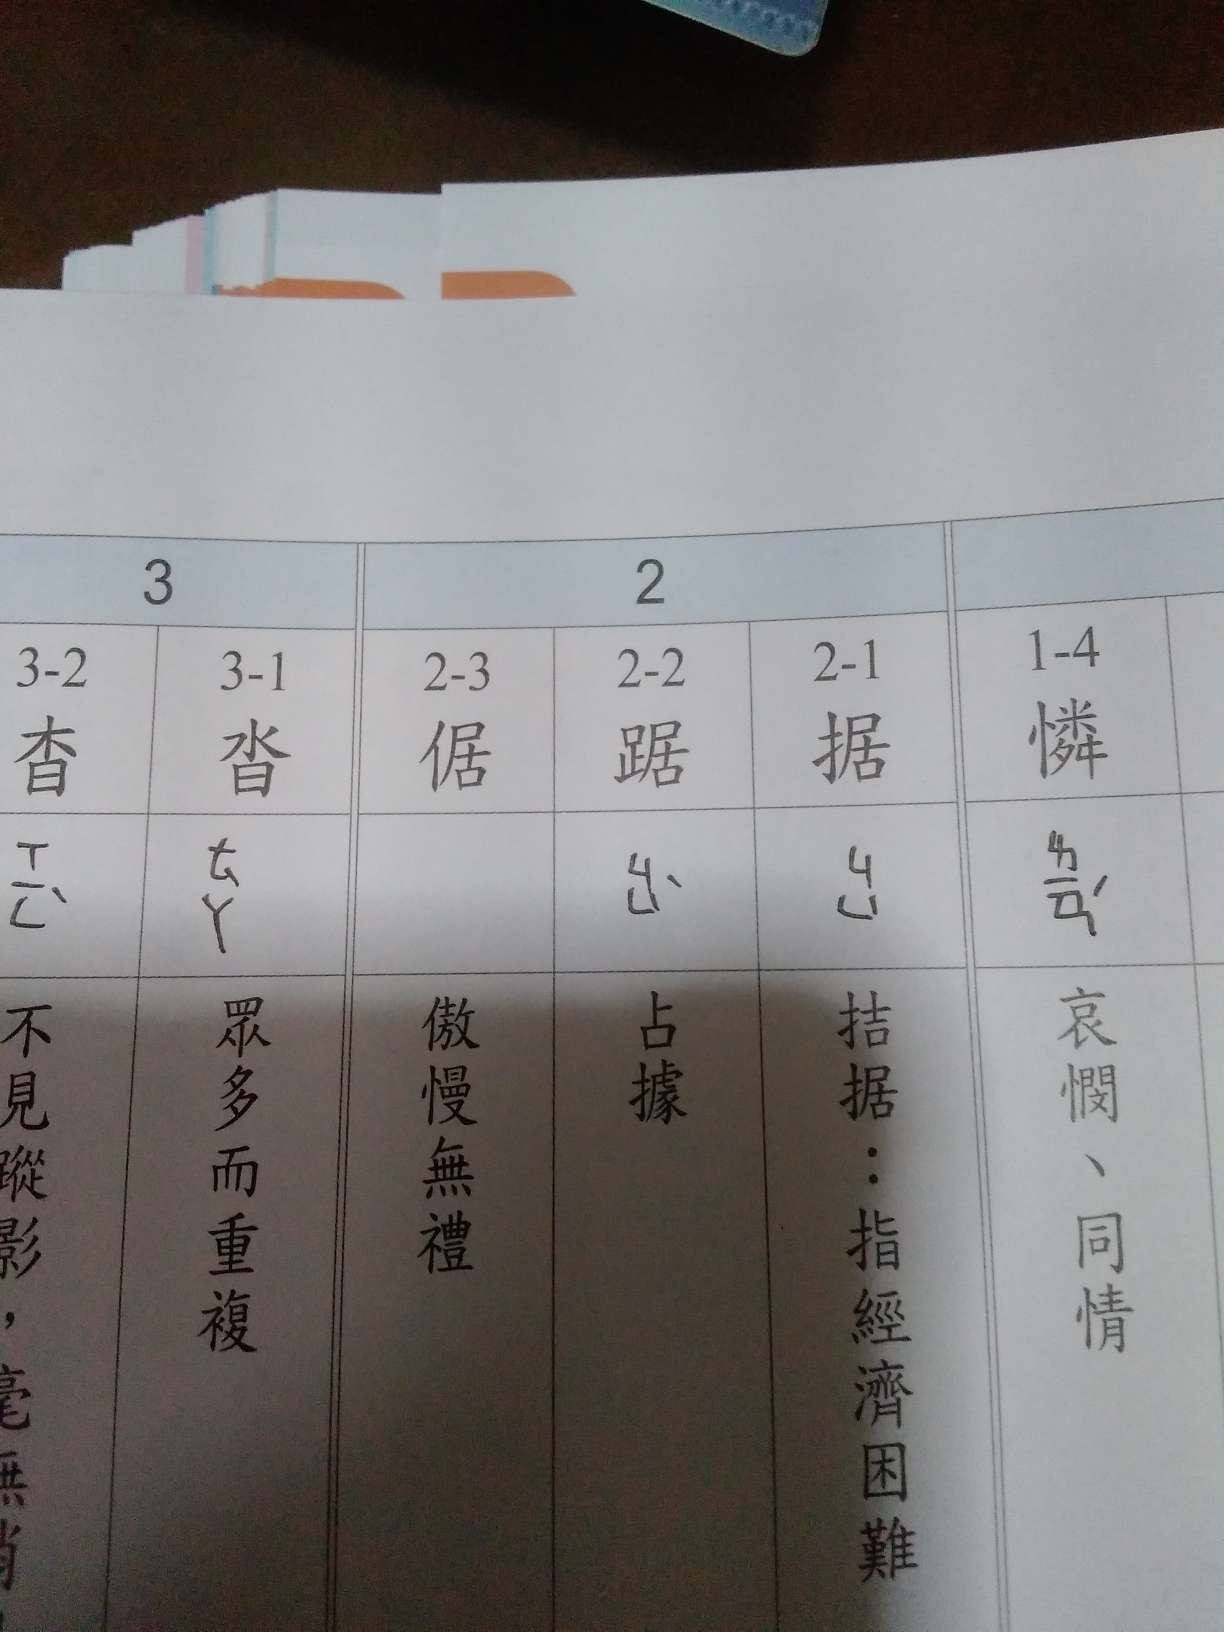 2
3
1-4
憐
ㄌㄧㄢˊ
哀憫、同情
2-1
据
ㄐㄩ
拮据：指經濟困難
2-2
踞
ㄐㄩˋ
占據
2-3
倨
傲慢無禮
3-1
沓
ㄊㄚ
眾多而重複
3-2
杳
ㄒㄧㄥˋ
不見蹤影，毫無消